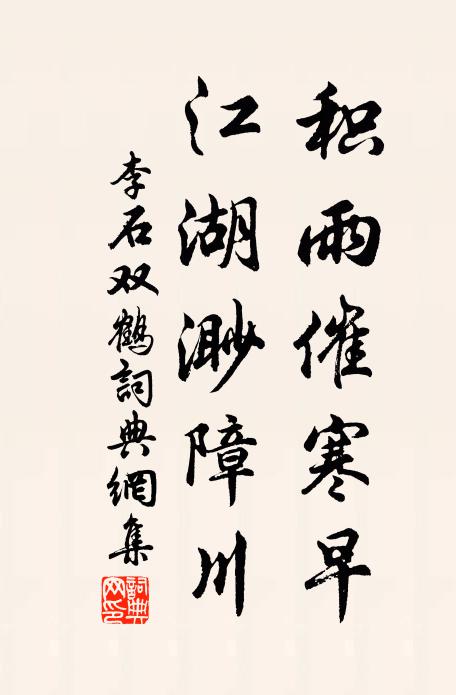 积雨催寒早
江湖渺障川
李石双鹤詞典網集
詞典网印